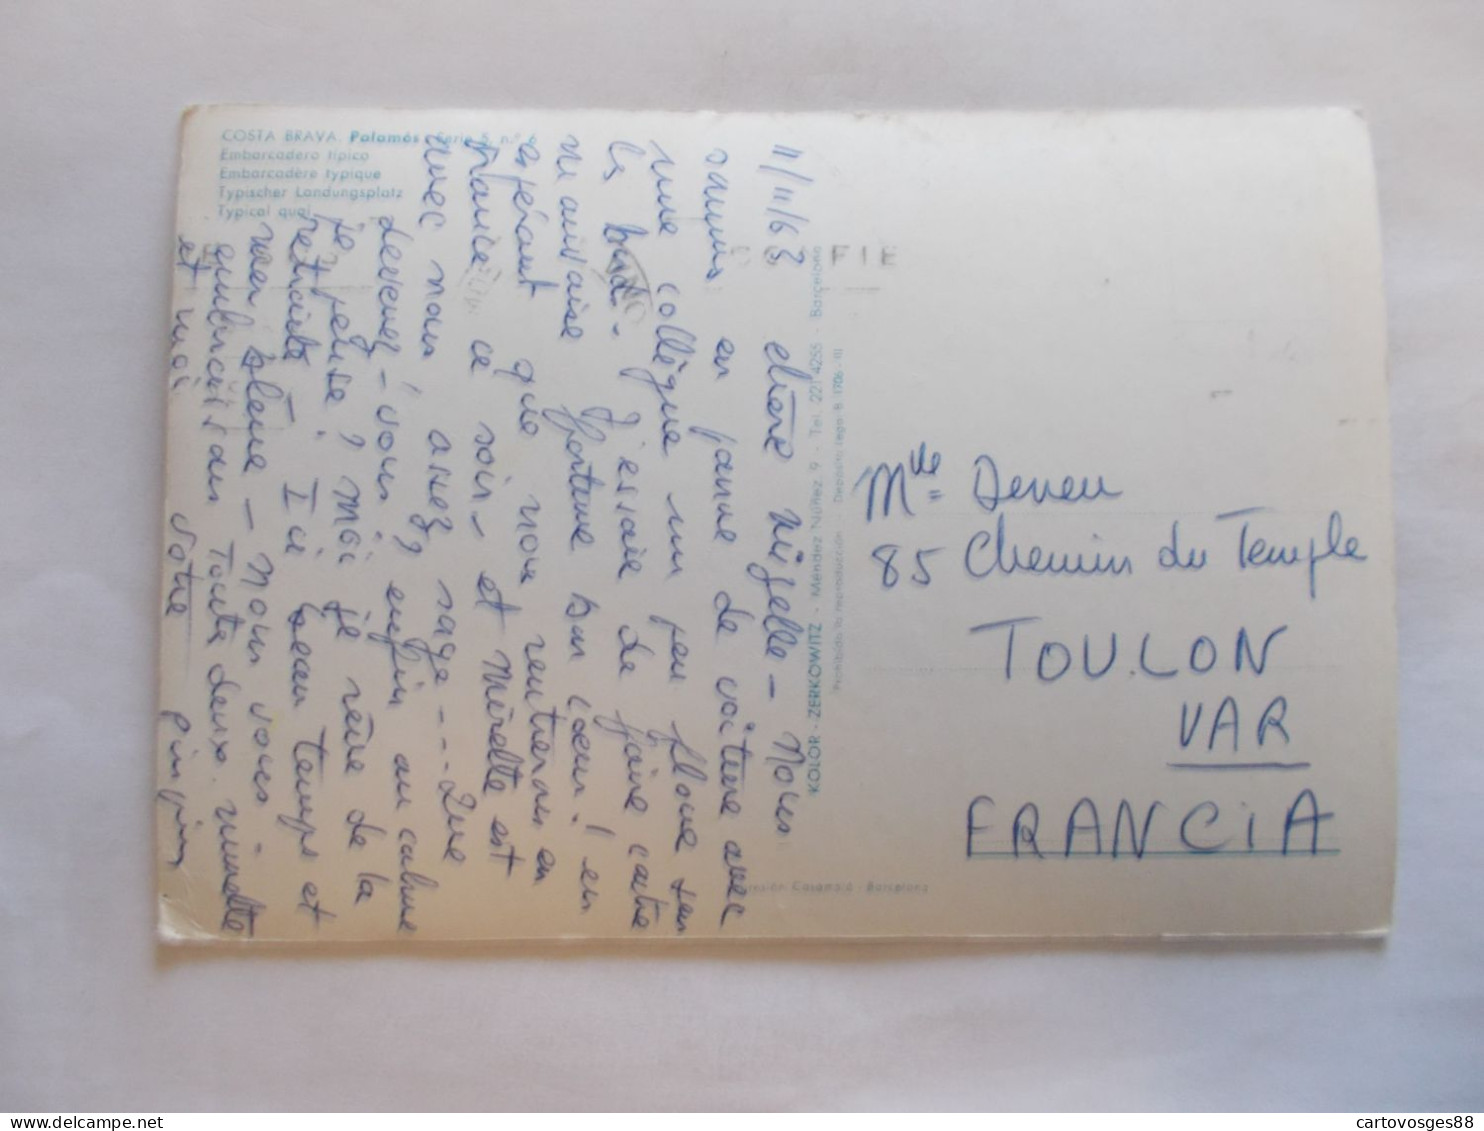 COSTA BRAVA. Palamós Serie 5, n.º 6
Embarcadero típico
Embarcadère typique
Typischer Landungsplatz
Typical quai
11/11/63 chère Nizelle - Nous
sommes en panne de voiture avec
une collègue un peu
J'essaie de faire contre
mauvaise fortune bon coeur! en
espérant que nous rentrerons en
France ce soir, et Mirette est
avec nous, assez sage --- Que
devenez-vous, enfin au calme
je pense, moi je rêve de la
retraite. Ici beau temps et
mer bleue - Nous vous
embrassons Toutes deux. Minette
et moi Votre pinpin
KOLOR - ZERKOWITZ - Méndez Núñez, 9 - Tel. 221 4255 - Barcelona
Prohibida la reproducción Depósito legal B. 1706-XII
FIE
Mlle Deveu
85 Chemin du Temple
TOULON
VAR
FRANCIA
Casamajó - Barcelona
cartovosges88